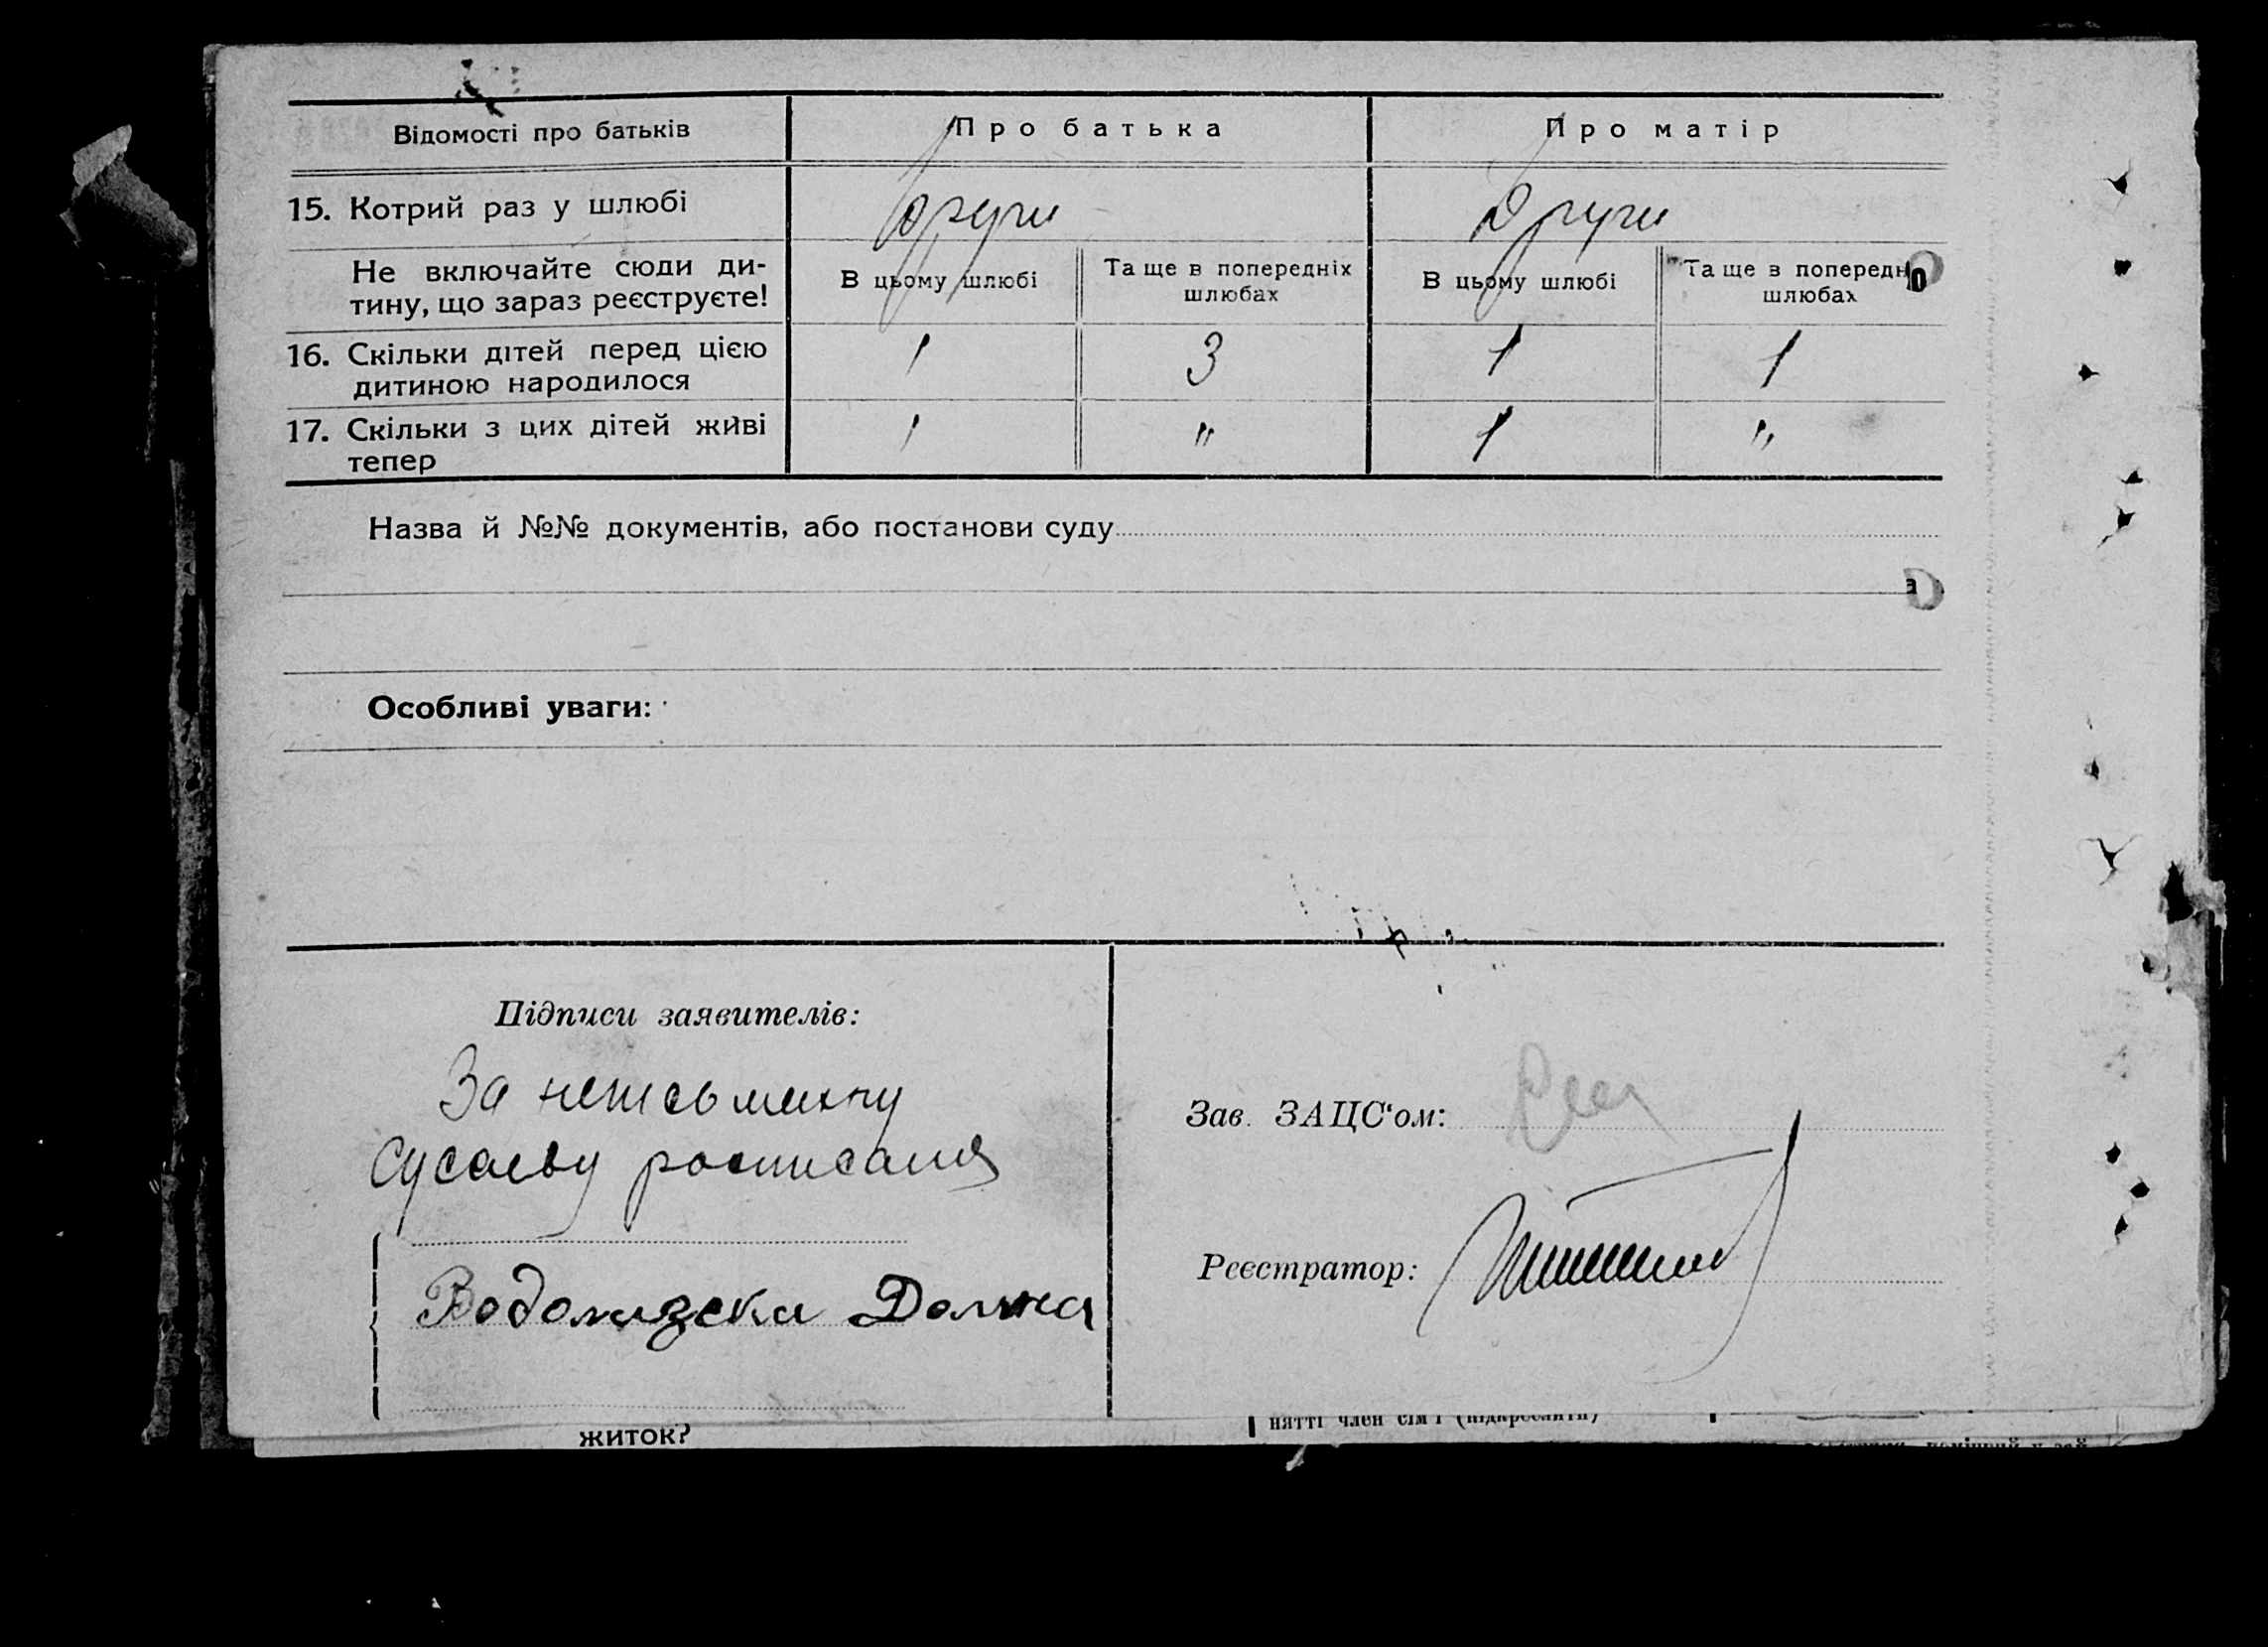 Відомості про батьків
Про батька
Про матір
15. Котрий раз у шлюбі
други
други
Не включайте сюди ди-
тину, що зараз реєструєте!
В цьому шлюбі
Та ще в попередніх
шлюбах
В цьому шлюбі
Та ще в поперед
шлюбах
16. Скільки дітей перед цією
дитиною народилося
1
3
1
1
17. Скільки з цих дітей живі
тепер
1
"
1
"
Назва й №№ документів, або постанови суду
Особливі уваги:
Підписи заявителів:
За неписьменну
Сусаеву
Зав. ЗАЦС'ом:
Реєстратор:
житок?
нятті член сім'ї (підкреслити)